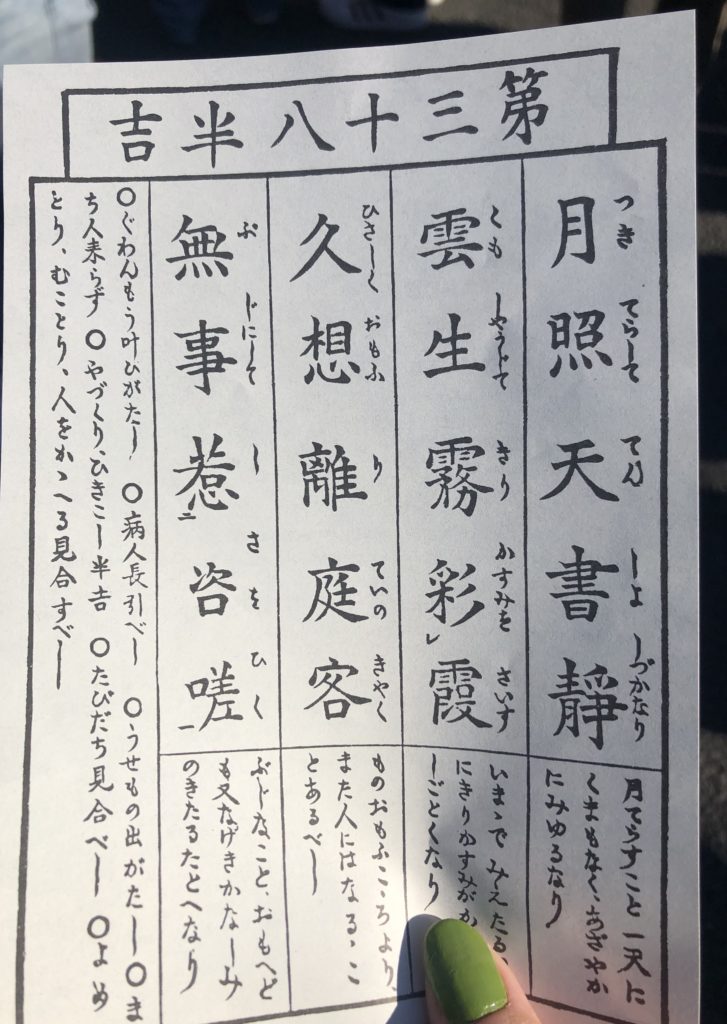 第三十八半吉
月照天書靜
つき てらして てん しよ しづかなり
月てらすこと一天に
くまもなく、あざやか
にみゆるなり
雲生霧彩レ霞
くも しやうじて きり かすみを さいす
いまゝで みえたる
にきりかすみがか
しごとくなり
久想離庭客
ひさしく おもふ り ていの きやく
ものおもふこゝろより、
また人にはなるゝこ
とあるべし
無事惹二咨嗟一
ぶ じにして し さ を ひく
ぶじなこと、おもへど
も又なげきかなしみ
のきたるたとへなり
○ぐわんもう叶ひがたし ○病人長引べし ○うせもの出がたし○ま
ち人来らず ○やづくり、ひきこし半吉 ○たびだち見合べし ○よめ
とり、むことり、人をかゝへる見合すべし